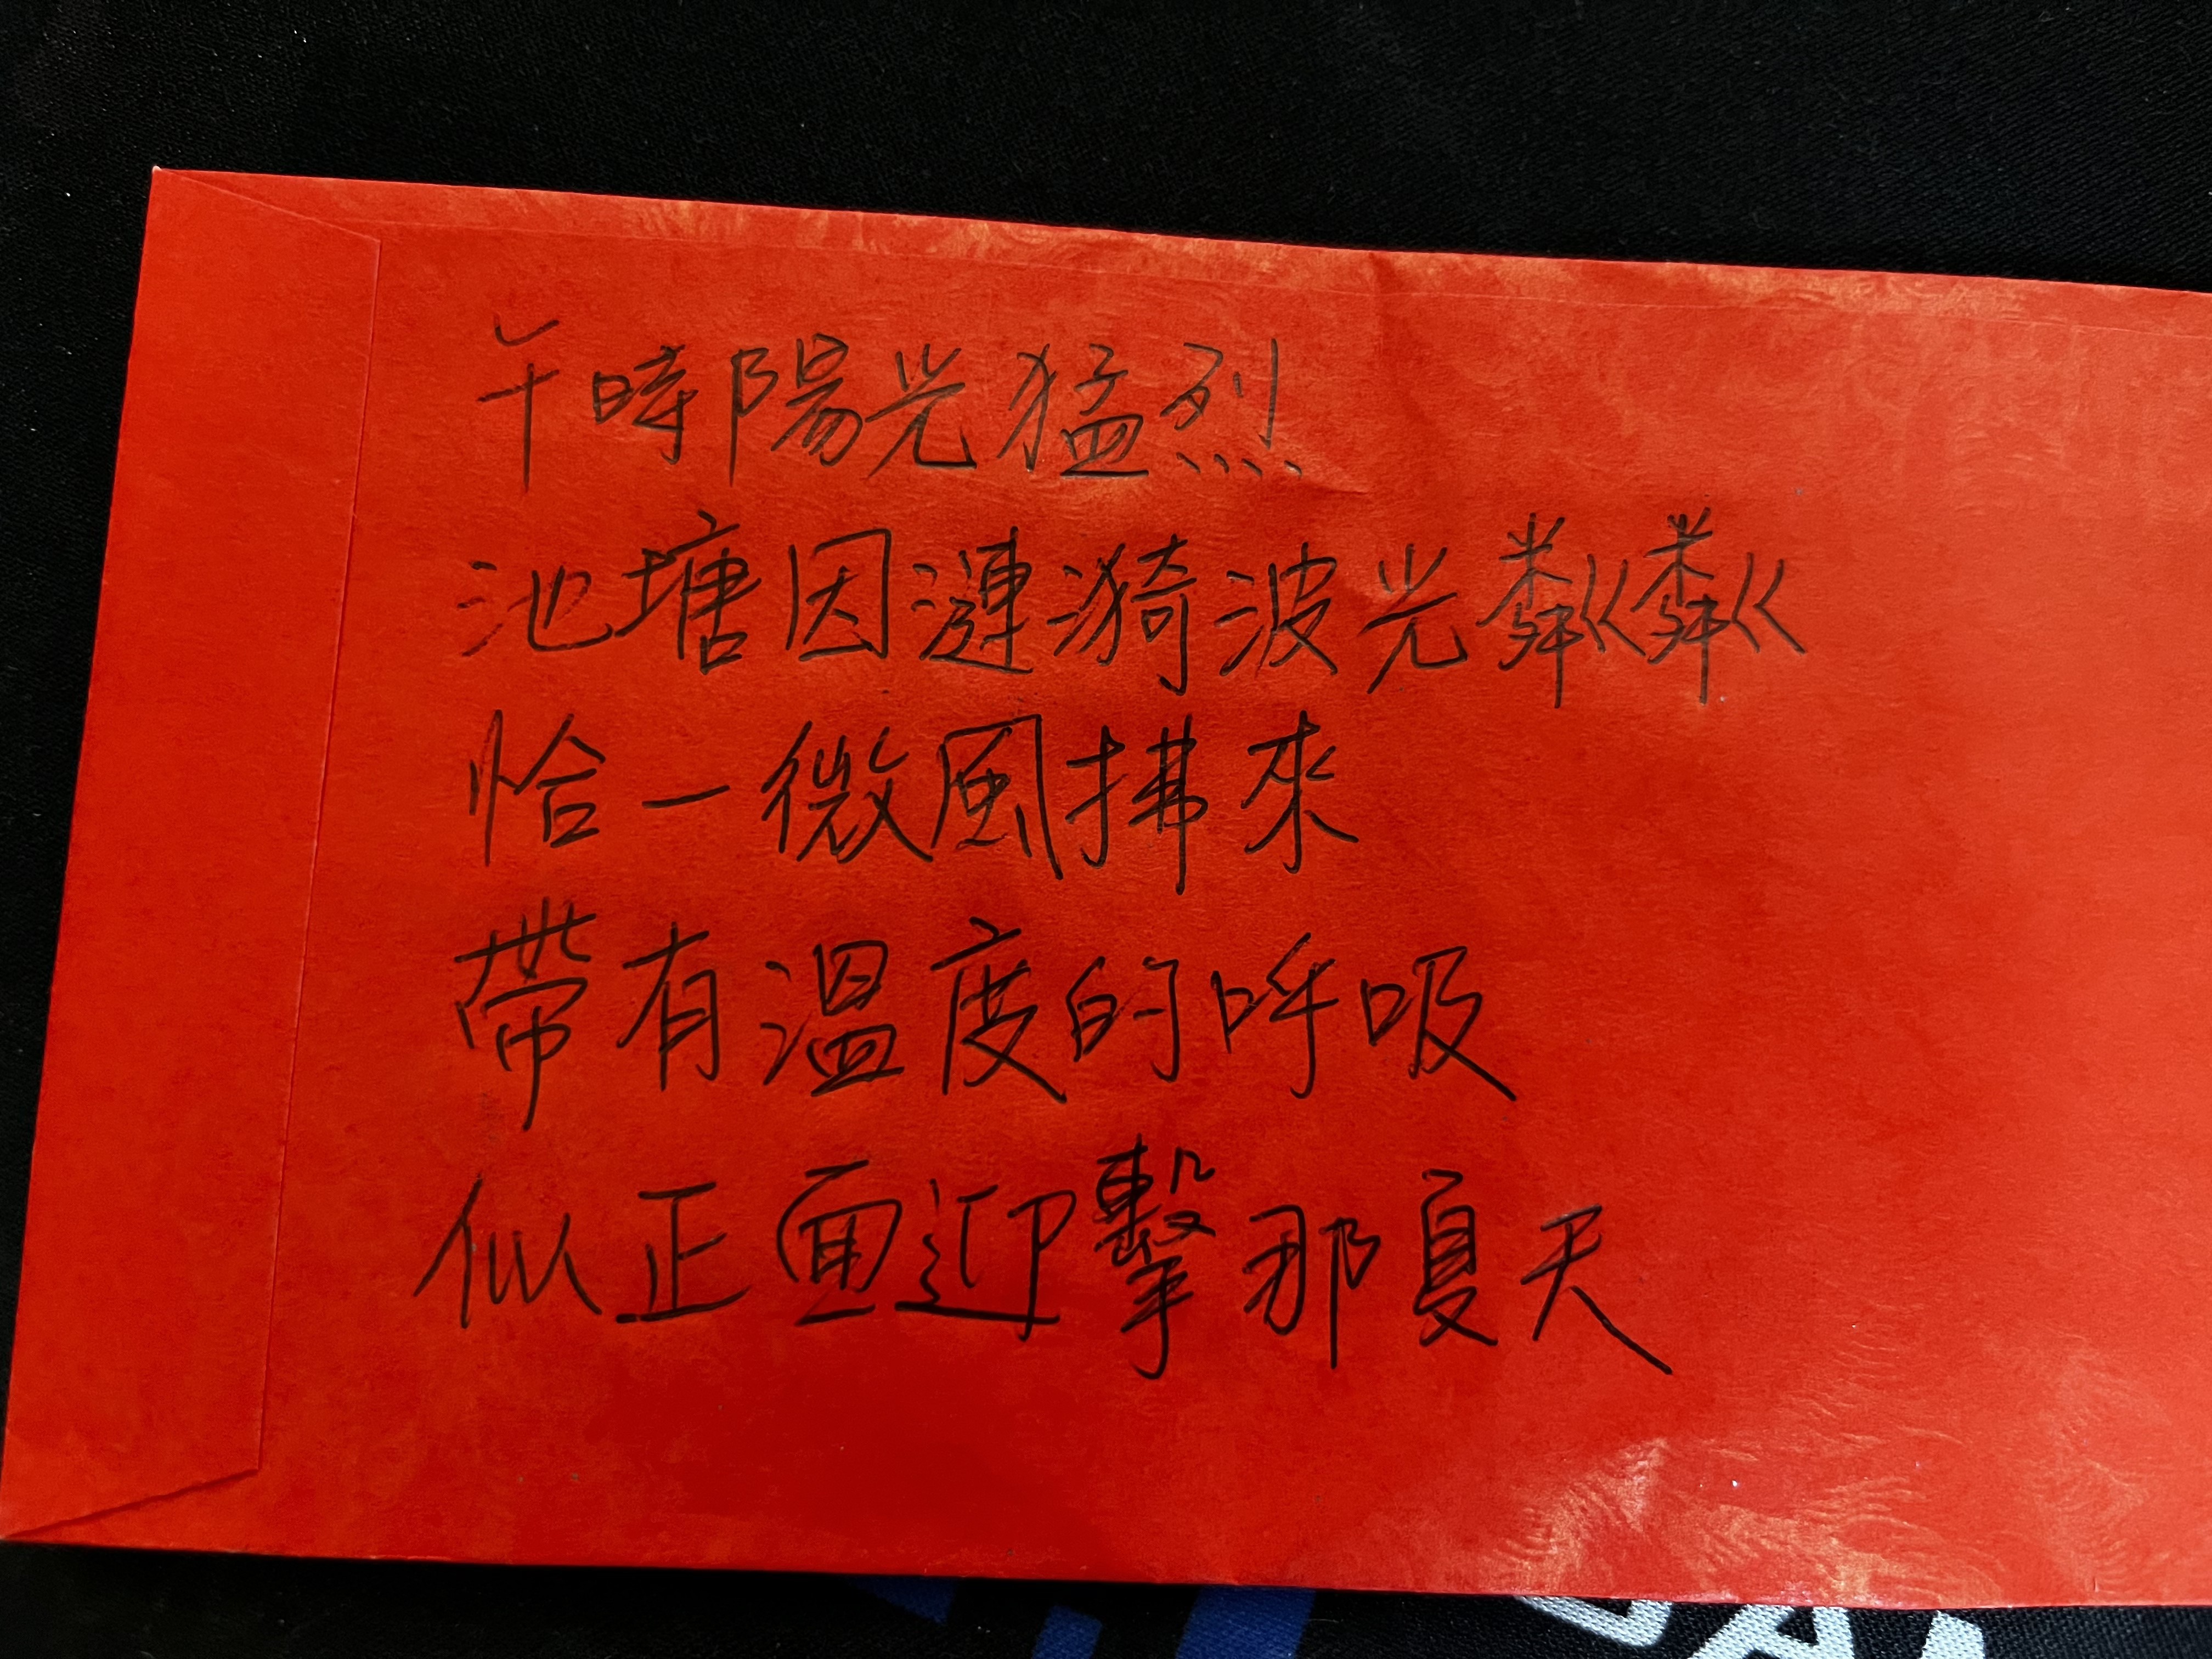 午時陽光猛烈
池塘因漣漪波光粼粼
恰一微風拂來
帶有溫度的呼吸
似正面迎擊那夏天